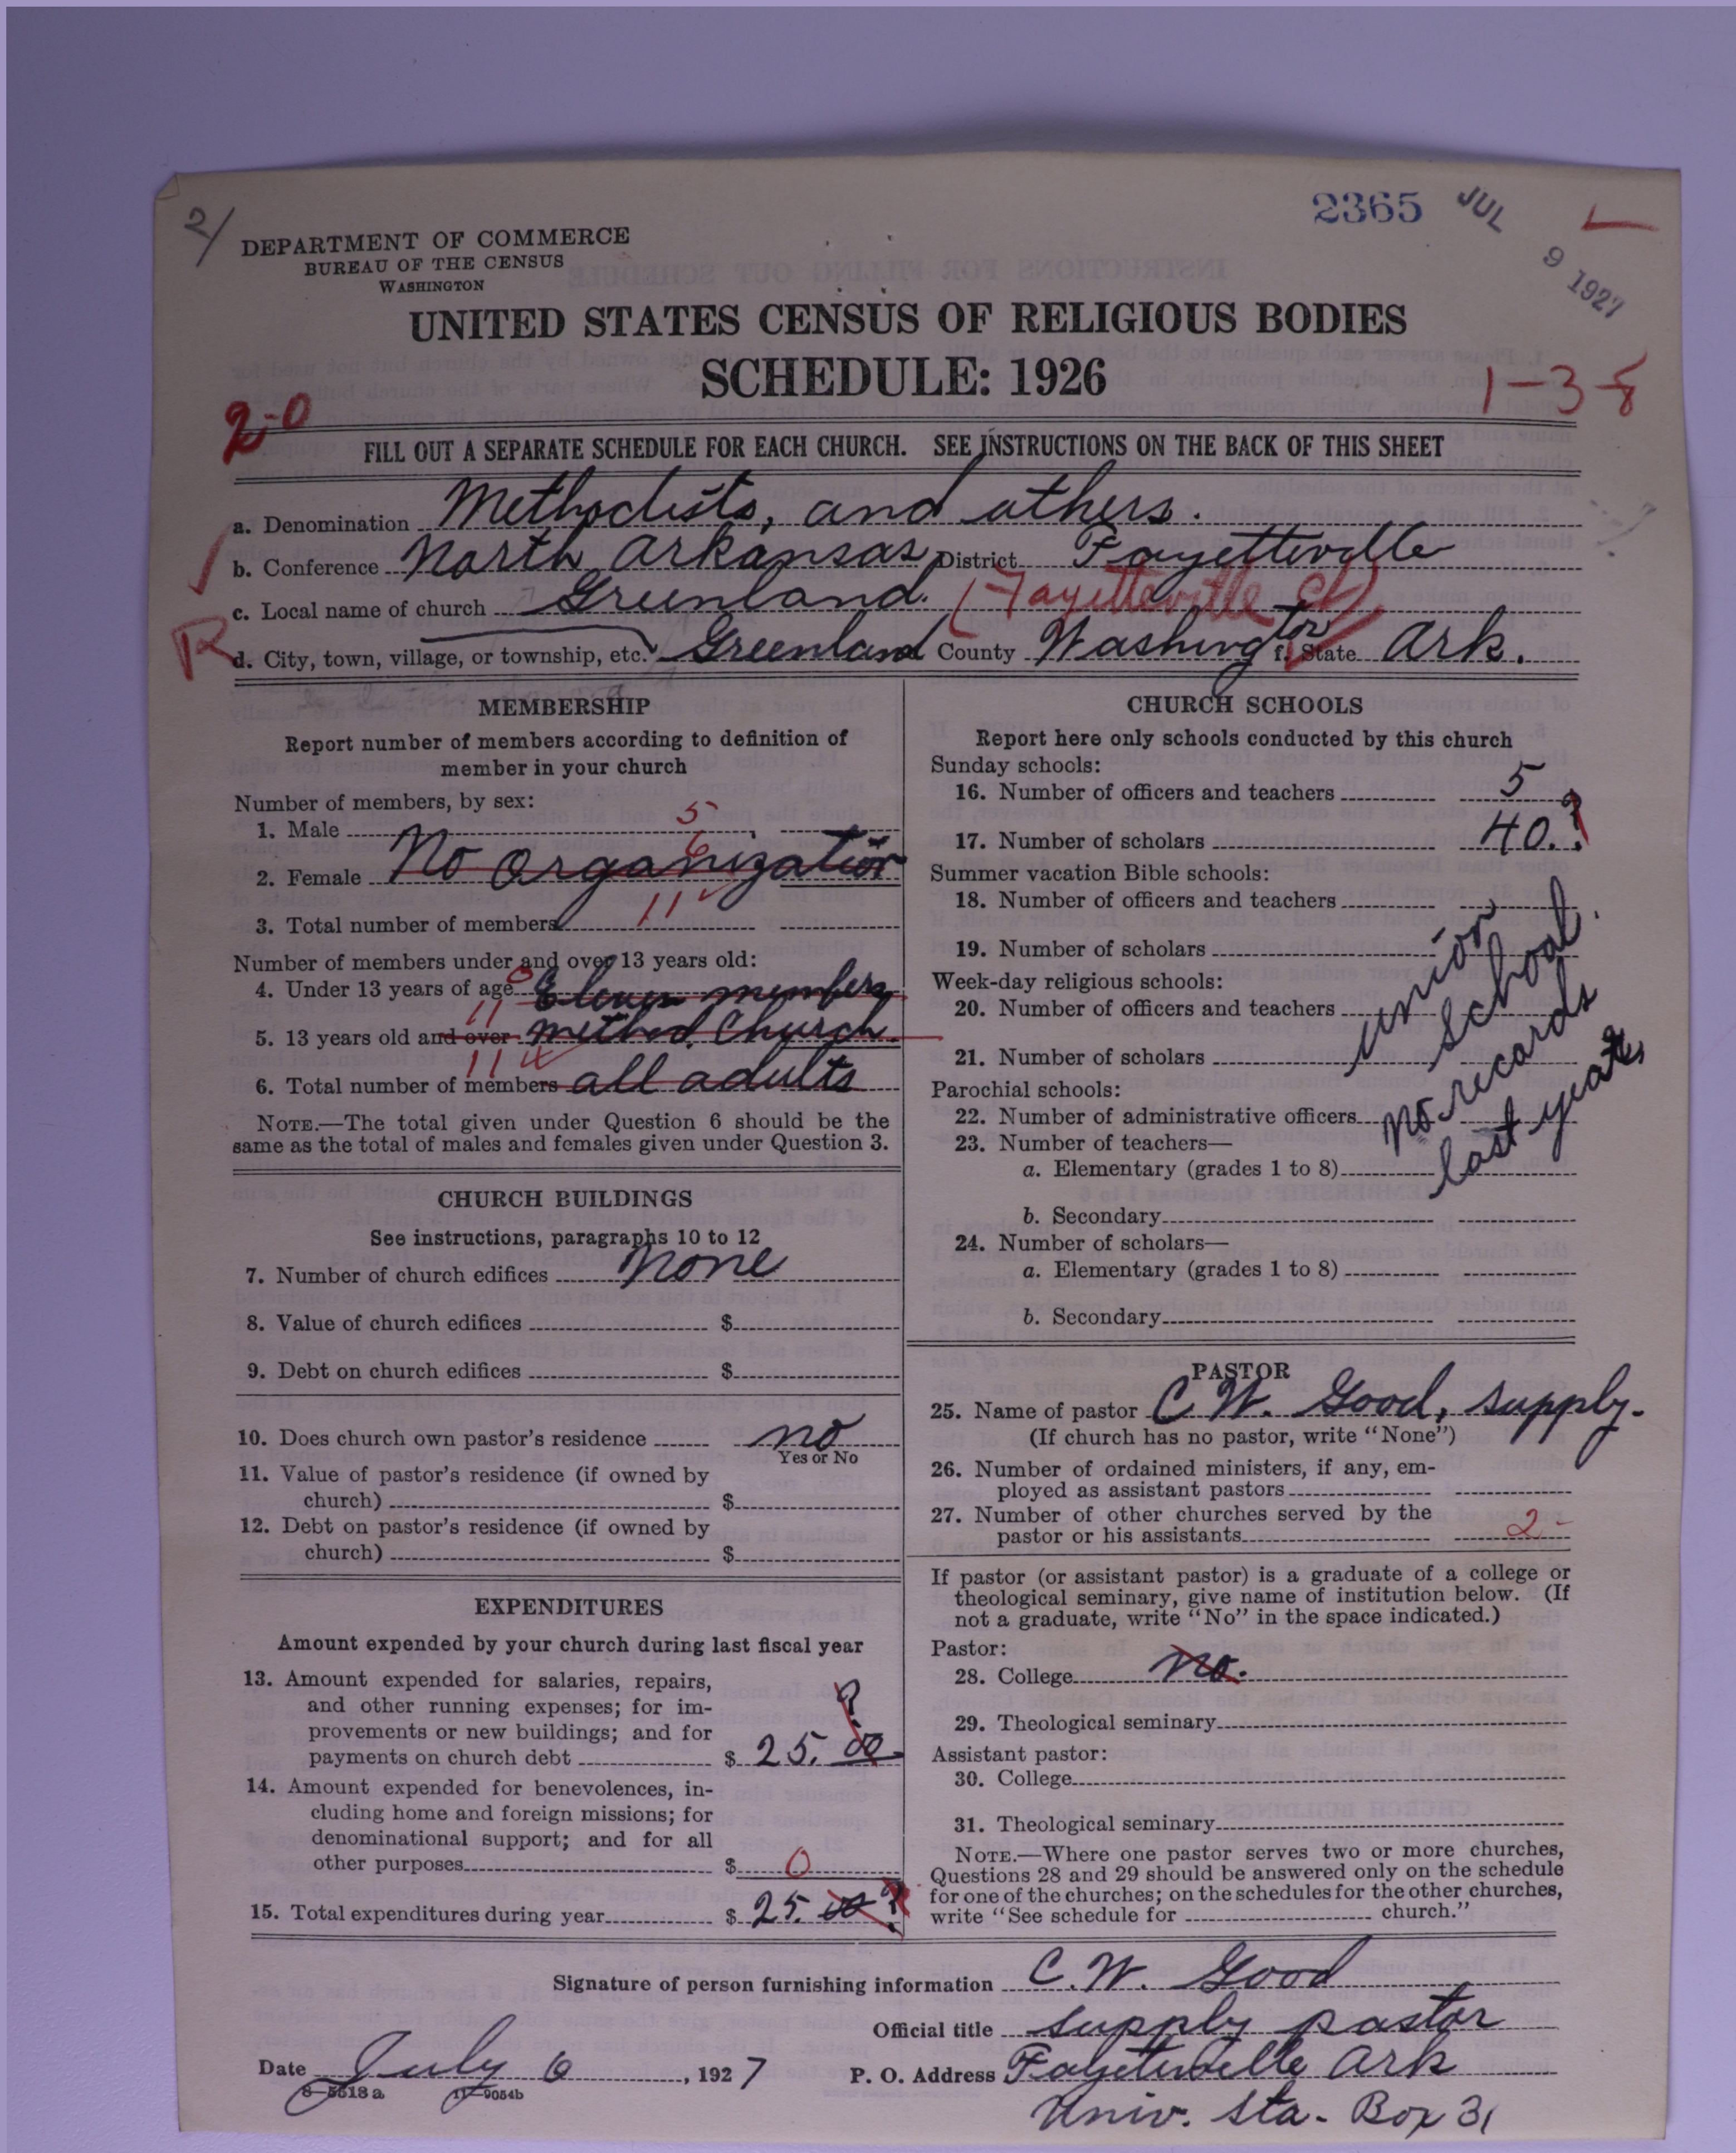 2365 JUL 9 1927
2/
DEPARTMENT OF COMMERCE
BUREAU OF THE CENSUS
WASHINGTON
UNITED STATES CENSUS OF RELIGIOUS BODIES
SCHEDULE: 1926
2-0
1-3-8
FILL OUT A SEPARATE SCHEDULE FOR EACH CHURCH. SEE INSTRUCTIONS ON THE BACK OF THIS SHEET
a. Denomination Methodists, and others.
b. Conference North Arkansas District Fayetteville
c. Local name of church Greenland. (Fayetteville Ct)
R
d. City, town, village, or township, etc. Greenland County Washington f. State Ark.
MEMBERSHIP
Report number of members according to definition of
member in your church
Number of members, by sex:
1. Male 5
2. Female No organization 6
3. Total number of members 11
Number of members under and over 13 years old:
4. Under 13 years of age 0 Eleven members
5. 13 years old and over 11 Method. Church.
6. Total number of members 11 all adults
NOTE.—The total given under Question 6 should be the
same as the total of males and females given under Question 3.
CHURCH BUILDINGS
See instructions, paragraphs 10 to 12
7. Number of church edifices None
8. Value of church edifices $
9. Debt on church edifices $
10. Does church own pastor's residence no
Yes or No
11. Value of pastor's residence (if owned by
church) $
12. Debt on pastor's residence (if owned by
church) $
EXPENDITURES
Amount expended by your church during last fiscal year
13. Amount expended for salaries, repairs,
and other running expenses; for im-
provements or new buildings; and for
payments on church debt $ 25. 00 ?
14. Amount expended for benevolences, in-
cluding home and foreign missions; for
denominational support; and for all
other purposes $ 0
15. Total expenditures during year $ 25. 00 ?
CHURCH SCHOOLS
Report here only schools conducted by this church
Sunday schools:
16. Number of officers and teachers 5
17. Number of scholars 40. ?
Summer vacation Bible schools:
18. Number of officers and teachers
19. Number of scholars
Week-day religious schools:
20. Number of officers and teachers
21. Number of scholars
Parochial schools:
22. Number of administrative officers
23. Number of teachers—
a. Elementary (grades 1 to 8)
b. Secondary
24. Number of scholars—
a. Elementary (grades 1 to 8)
b. Secondary
union
school.
no records
last year
PASTOR
25. Name of pastor C W. Good, supply.
(If church has no pastor, write "None")
26. Number of ordained ministers, if any, em-
ployed as assistant pastors
27. Number of other churches served by the
pastor or his assistants 2
If pastor (or assistant pastor) is a graduate of a college or
theological seminary, give name of institution below. (If
not a graduate, write "No" in the space indicated.)
Pastor:
28. College no.
29. Theological seminary
Assistant pastor:
30. College
31. Theological seminary
NOTE.—Where one pastor serves two or more churches,
Questions 28 and 29 should be answered only on the schedule
for one of the churches; on the schedules for the other churches,
write "See schedule for church."
Signature of person furnishing information C. W. Good
Official title supply pastor
Date July 6, 1927 P. O. Address Fayetteville Ark
8-5518 a 11-9054b
Univ. Sta. Box 31